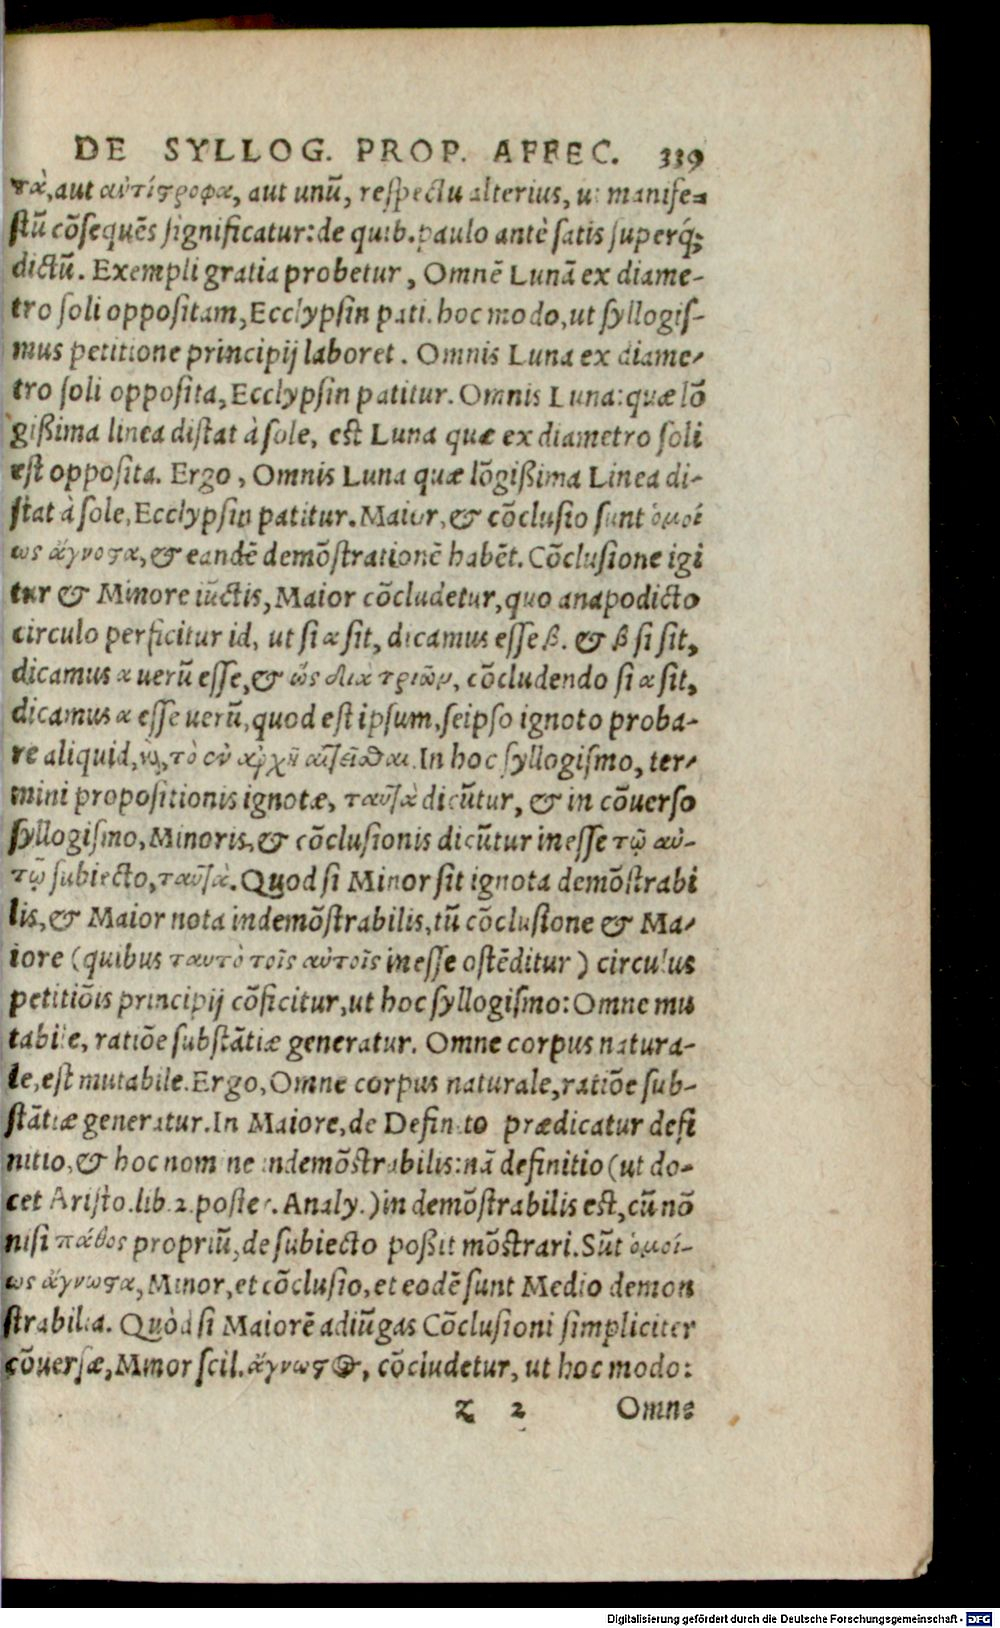 DE SYLLOG. PROP. AFFEC. 339
τὰ, aut αὐτίϛροφα, aut unū, respectu alterius, ut manife-
stū cōsequēs significatur: de quib. paulo antè satis superq́;
dictū. Exempli gratia probetur, Omnē Lunā ex diame-
tro soli oppositam, Ecclypsin pati. hoc modo, ut syllogis-
mus petitione principij laboret. Omnis Luna ex diame-
tro soli opposita, Ecclypsin patitur. Omnis Luna: quæ lō
gißima linea distat à sole, est Luna quæ ex diametro soli
est opposita. Ergo, Omnis Luna quæ lōgißima Linea di-
stat à sole, Ecclypsin patitur. Maior, & cōclusio sunt ὁμοί
ως ἄγνοϛα, & eandē demōstrationē habēt. Cōclusione igi
tur & Minore iūctis, Maior cōcludetur, quo anapodicto
circulo perficitur id, ut si α sit, dicamus esse β. & β si sit,
dicamus α uerū esse, & ὡς δια τριῶν, cōcludendo si α sit,
dicamus α esse uerū, quod est ipsum, seipso ignoto proba-
re aliquid, ϗ, τὸ ἐν ἀρχῇ αἰτεῖσθαι. In hoc syllogismo, ter-
mini propositionis ignotæ, ταυτὰ dicūtur, & in cōuerso
syllogismo, Minoris, & cōclusionis dicūtur inesse τῷ αὐ-
τῷ subiecto, ταυτὰ. Quod si Minor sit ignota demōstrabi
lis, & Maior nota indemōstrabilis, tū cōclusione & Ma-
iore (quibus ταυτὸ τοῖς αὐτοῖς inesse ostēditur) circulus
petitiōis principij cōficitur, ut hoc syllogismo: Omne mu
tabile, ratiōe substātiæ generatur. Omne corpus natura-
le, est mutabile. Ergo, Omne corpus naturale, ratiōe sub-
stātiæ generatur. In Maiore, de Definito prædicatur defi
nitio, & hoc nomine indemōstrabilis: nā definitio (ut do-
cet Aristo. lib. 2. poster. Analy.) indemōstrabilis est, cū nō
nisi πάθος propriū, de subiecto poßit mōstrari. Sūt ὁμοί-
ως ἄγνωϛα, Minor, et cōclusio, et eodē sunt Medio demon
strabilia. Quòd si Maiorē adiūgas Cōclusioni simpliciter
cōuersæ, Minor scil. ἄγνωϛος, cōcludetur, ut hoc modo:
Z 2 Omne
Digitalisierung gefördert durch die Deutsche Forschungsgemeinschaft - DFG